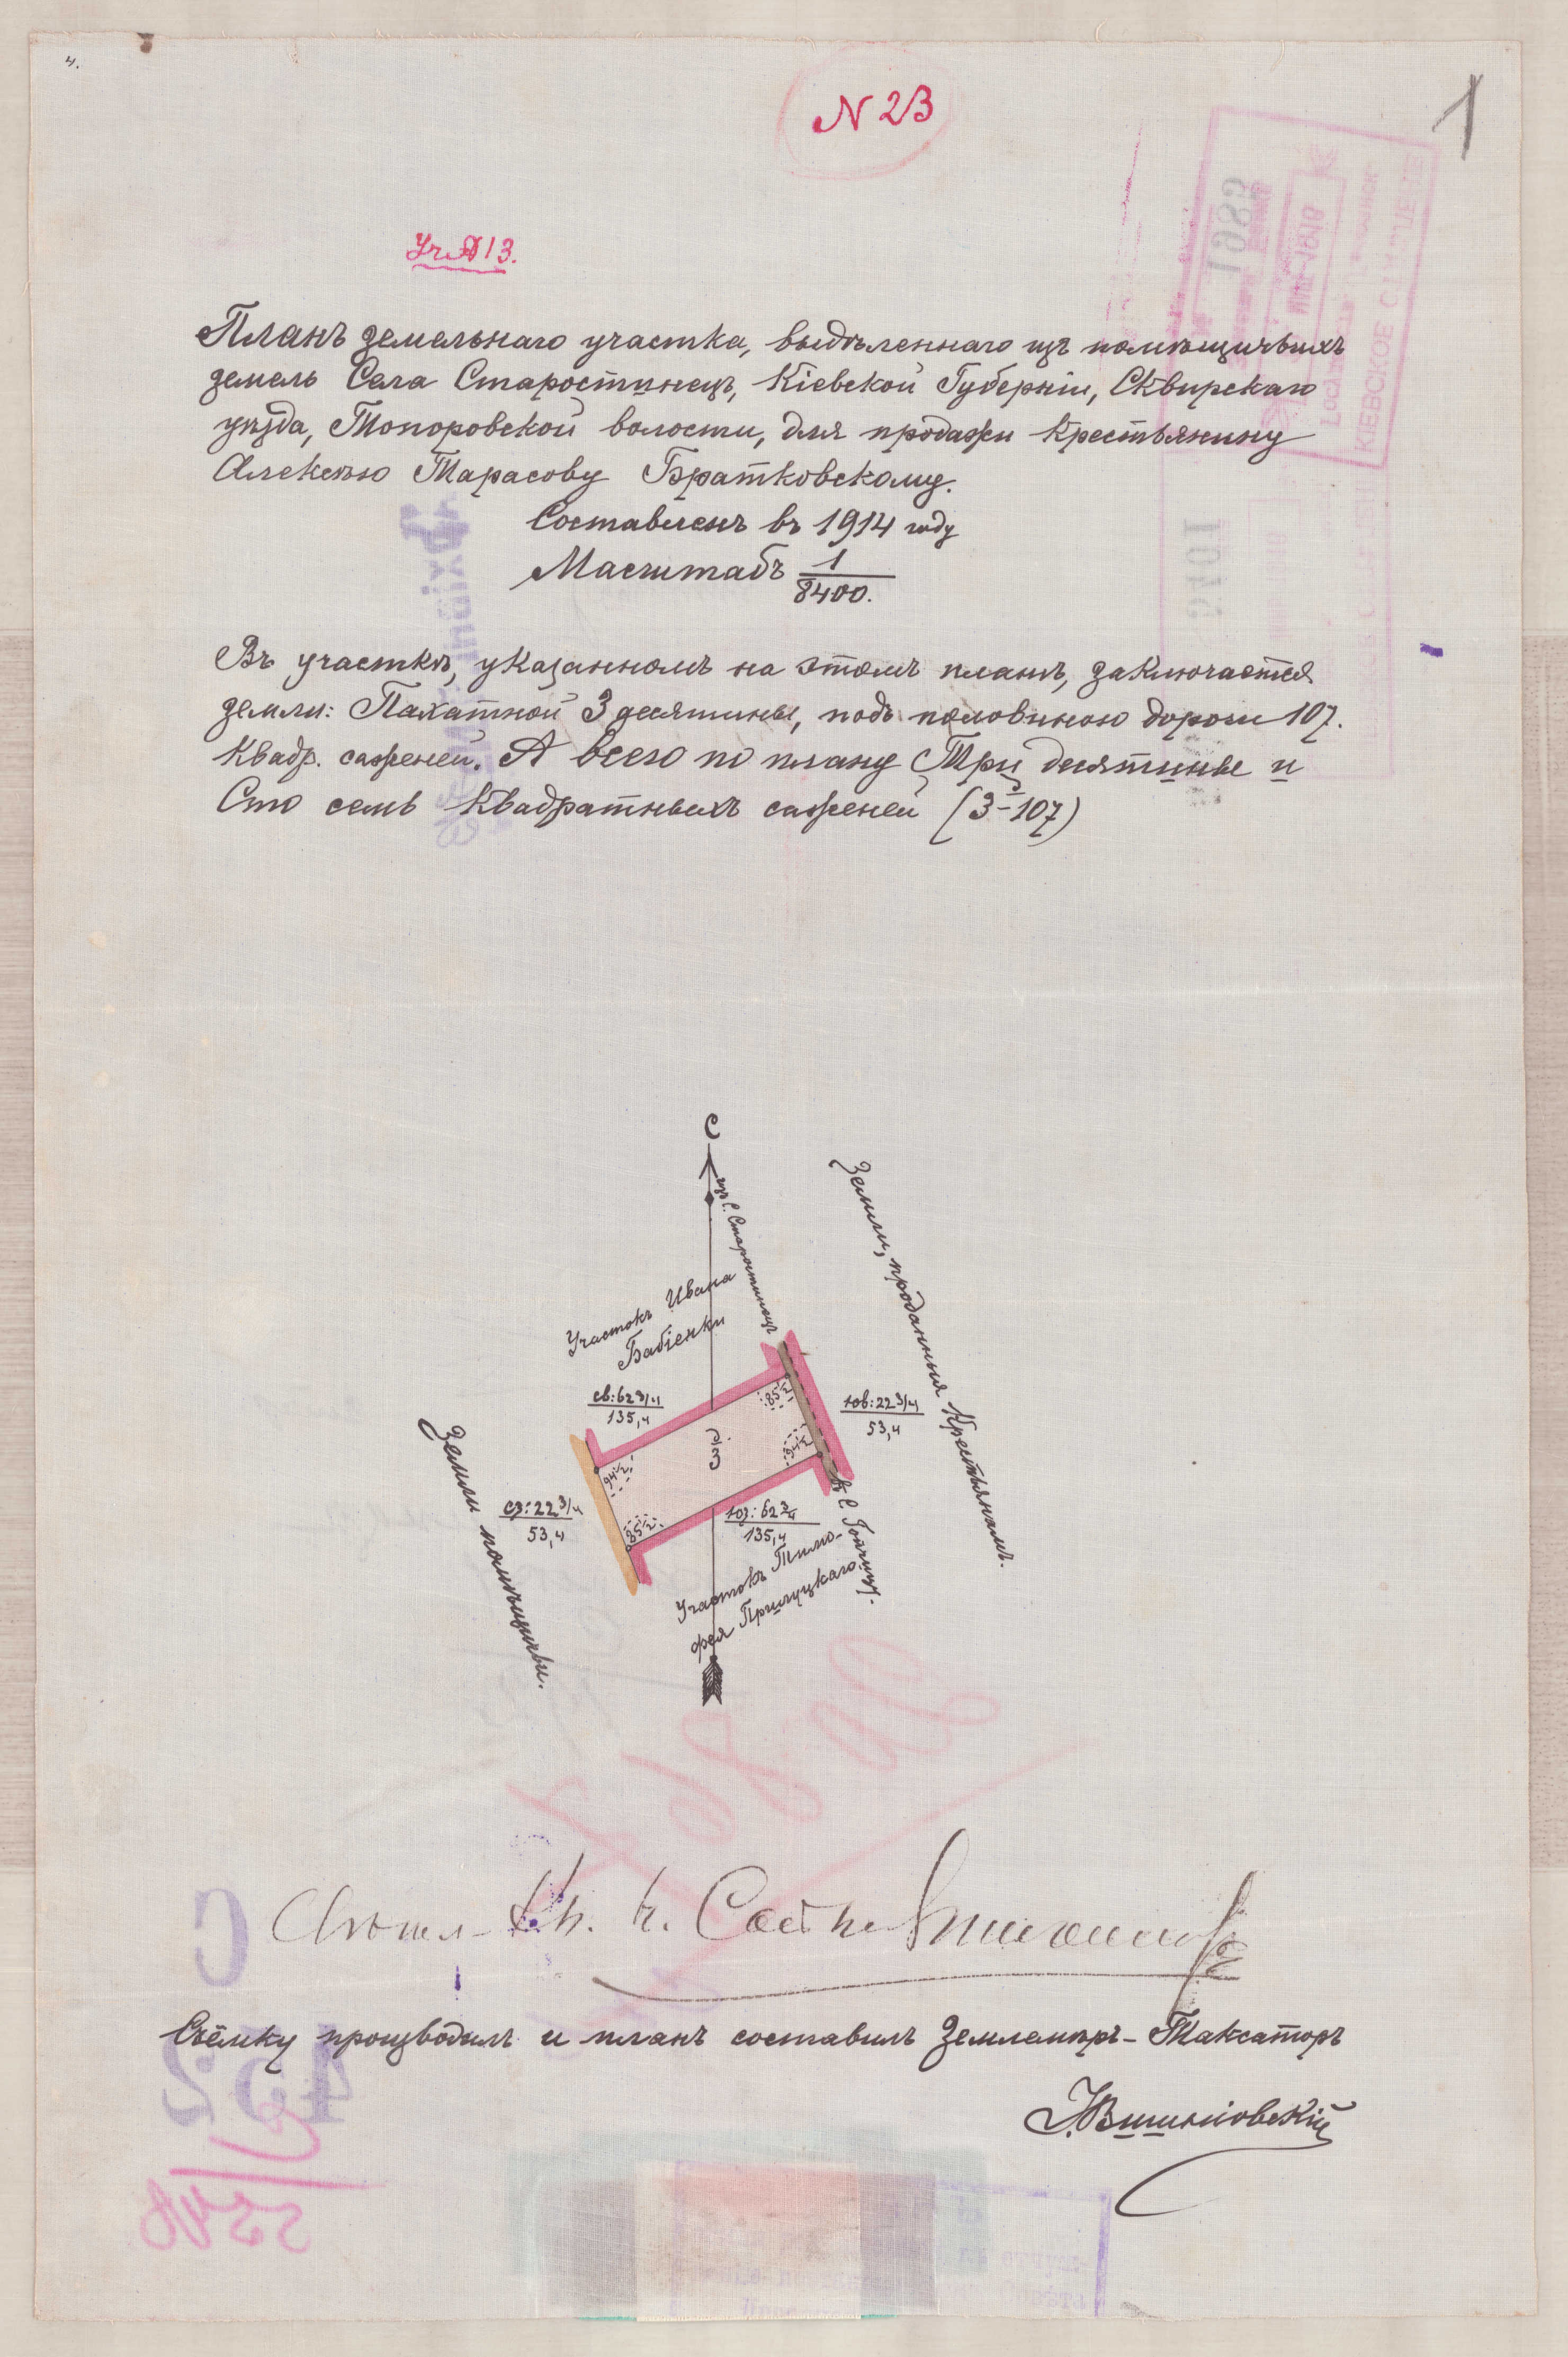 ч.
N 23
1
Уч. № 13.
Планъ земельнаго участка, выдѣленнаго изъ помѣщичьихъ
земель Села Старостинецъ, Кіевской Губерніи, Сквирскаго
уѣзда, Топоровской волости, для продажи крестьянину
Алексѣю Тарасову Братковскому.
Составленъ въ 1914 году
Масштабъ 1/8400.
Въ участкѣ, указанномъ на этомъ планѣ, заключается
земли: Пахатной 3 десятины, подъ половиною дороги 107.
Квадр. саженей. А всего по плану Три десятины и
Сто семь Квадратныхъ саженей (3-107)
С
изъ С. Старостинецъ
Земли, проданныя Крестьянамъ.
Участокъ Ивана
Бабіенки
св: 62 3/4
135,4
85 1/2
юв: 22 3/4
53,4
3 д.
94 1/2
94 1/2
85 1/2
сз: 22 3/4
53,4
юз: 62 3/4
135,4
Земли помѣщичьи.
Участокъ Тимо-
фея Прилуцкаго.
въ С.
Съёмку производилъ и планъ составилъ Землемѣръ-Таксаторъ
Вишніовскій